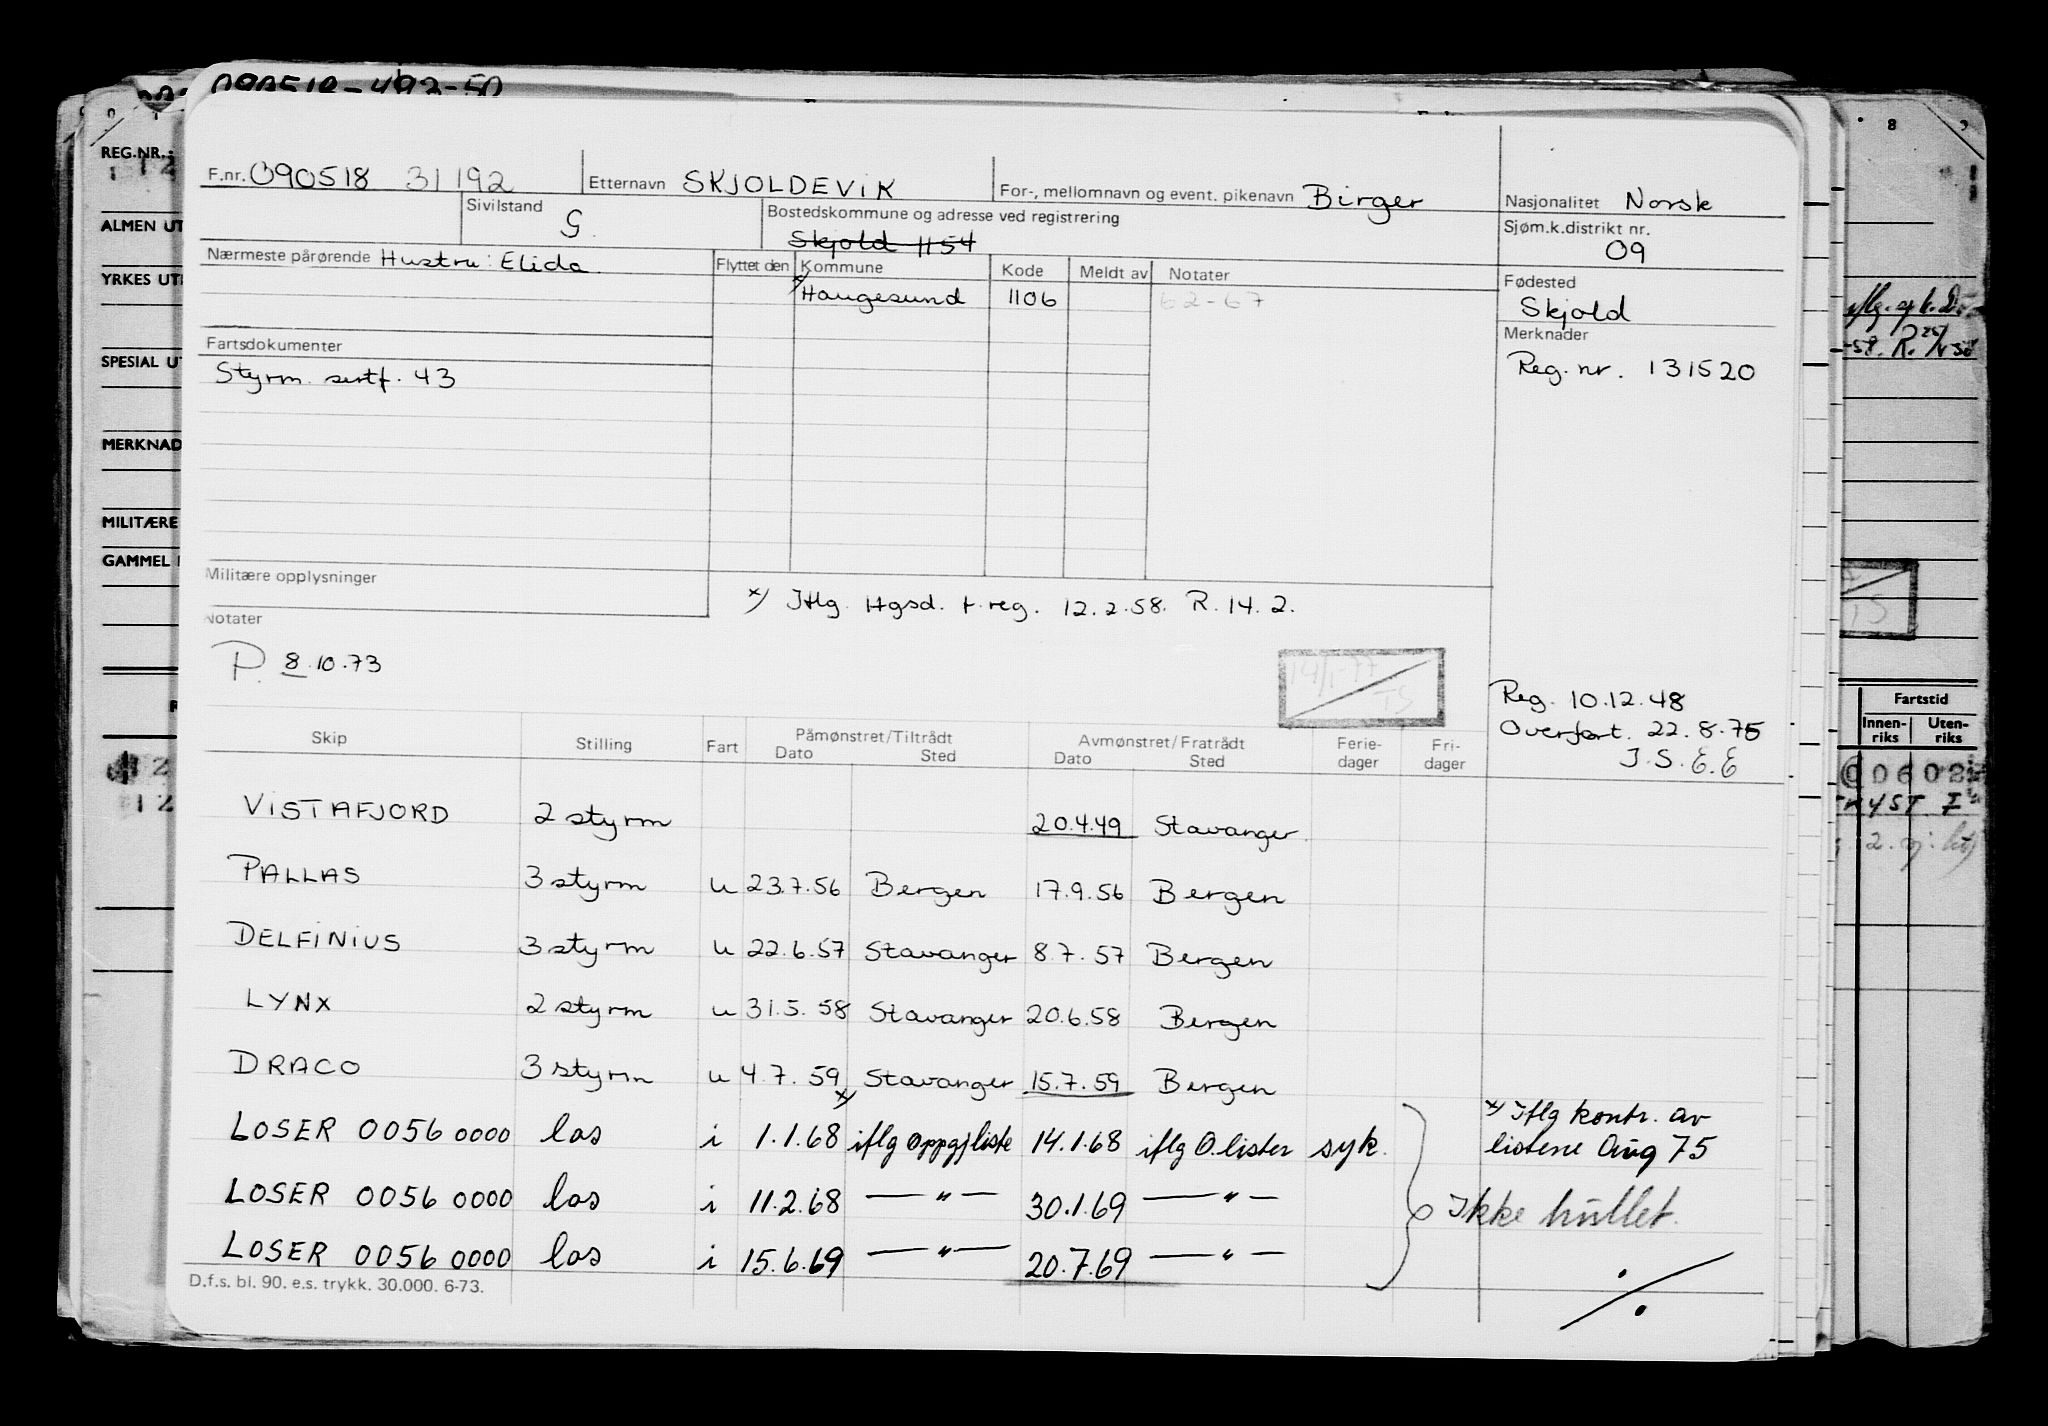 090518-492-50
REG.NR.:
ALMEN UT
YRKES UT
SPESIAL UT
MERKNAD
MILITÆRE
GAMMEL
F.nr. 090518 31192 Etternavn SKJOLDEVIK For-, mellomnavn og event. pikenavn Birger Nasjonalitet Norsk
Sivilstand G. Bostedskommune og adresse ved registrering Sjøm.k.distrikt nr.
Skjold 1154 09
Nærmeste pårørende Hustru: Elida Flyttet den Kommune Kode Meldt av Notater Fødested
x) Haugesund 1106 62-67 Skjold
Fartsdokumenter Merknader
Styrm. sertf. 43 Reg. nr. 131520
Militære opplysninger
x) Iflg. Hgsd. f.reg. 12.2.58. R. 14.2.
Notater
P. 8.10.73
14/1-77
TS
Reg. 10.12.48
Overført. 22.8.75
J.S. E.E
Skip Stilling Fart Påmønstret/Tiltrådt Dato Sted Avmønstret/Fratrådt Dato Sted Ferie-dager Fri-dager
VISTAFJORD 2 styrm 20.4.49 Stavanger
PALLAS 3 styrm u 23.7.56 Bergen 17.9.56 Bergen
DELFINIUS 3 styrm u 22.6.57 Stavanger 8.7.57 Bergen
LYNX 2 styrm u 31.5.58 Stavanger 20.6.58 Bergen
DRACO 3 styrm u 4.7.59 Stavanger 15.7.59 Bergen
LOSER 0056 0000 los i 1.1.68 x) iflg oppgj liste 14.1.68 iflg O.lister syk. x) Iflg kontr. av
listene Aug 75
LOSER 0056 0000 los i 11.2.68 — " — 30.1.69 — " — Ikke hullet.
LOSER 0056 0000 los i 15.6.69 — " — 20.7.69 — " —
D.f.s. bl. 90. e.s. trykk. 30.000. 6-73.
./.
8 9
TS
Fartstid
Innen-riks Uten-riks